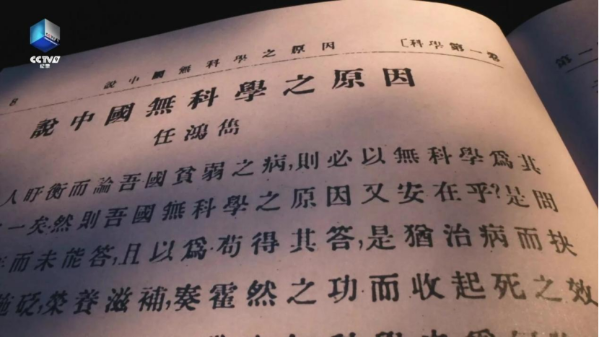 CCTV9
纪录
8 說中國無科學之原因 〔科學第一卷
第一
說中國無科學之原因
任鴻雋
人盱衡而論吾國貧弱之病,則必以無科學爲其
一矣.然則吾國無科學之原因又安在乎?是問
而未能答,且以爲苟得其答,是猶治病而抉
砭,榮養滋補,奏霍然之功而收起死之效